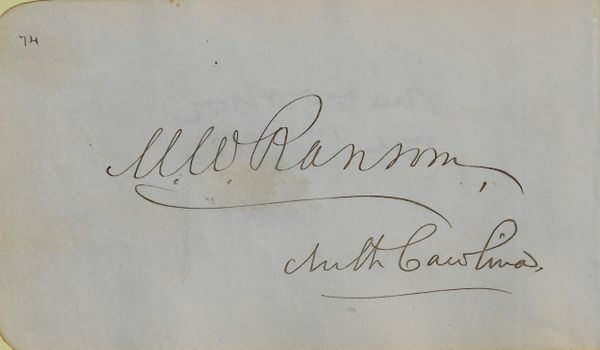 74
M.W. Ransom,
North Carolina.